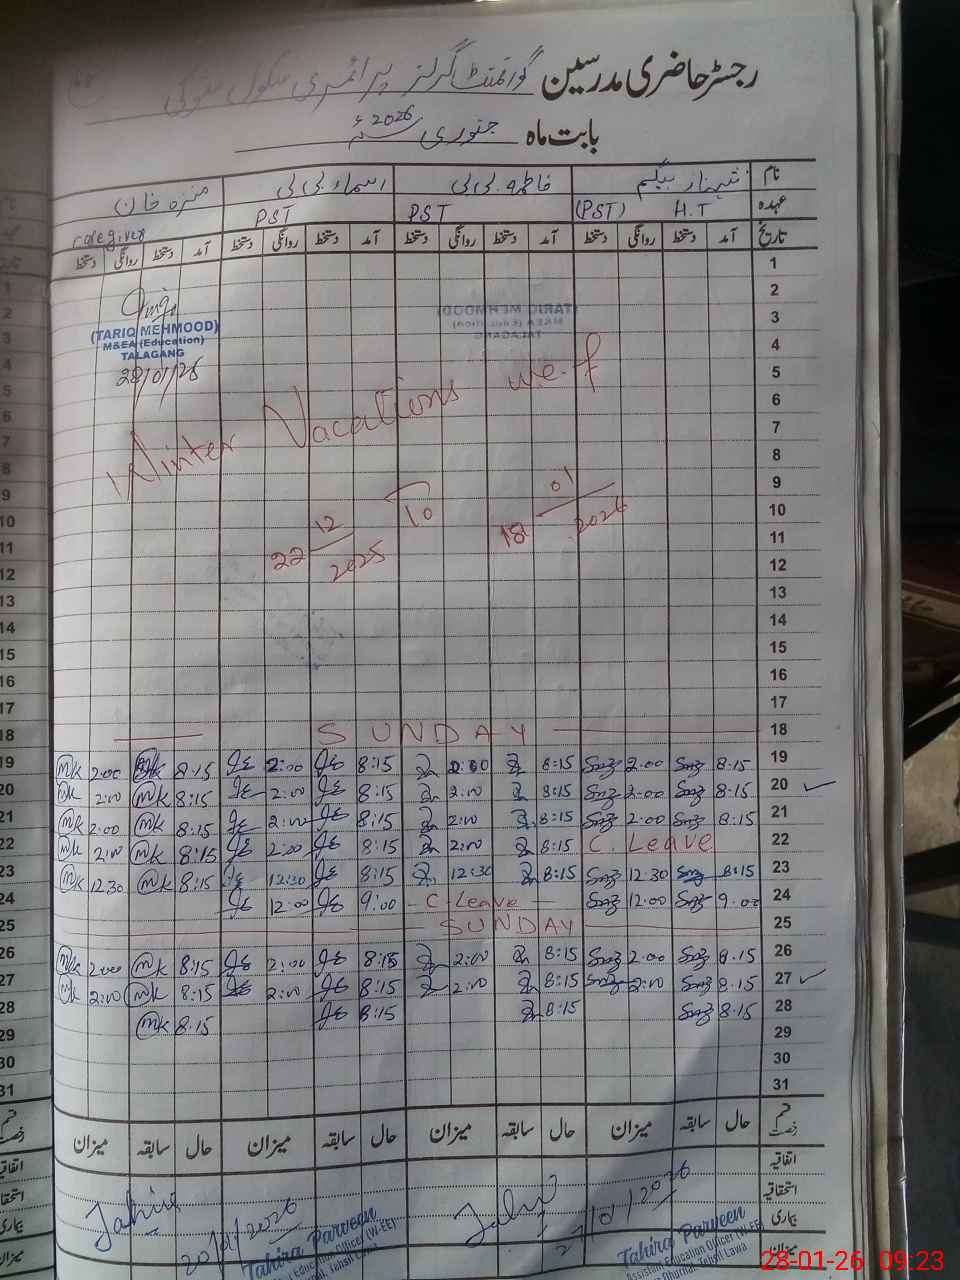 رجسٹر حاضری مدرسین گورنمنٹ گرلز پرائمری سکول
بابت ماہ جنوری 2026ء
نام شہناز بیگم فاطمہ بی بی اسماء بی بی منزہ خان
عہدہ H.T (PST) PST PST
تاریخ آمد دستخط روانگی دستخط آمد دستخط روانگی دستخط آمد دستخط روانگی دستخط آمد دستخط روانگی دستخط
1
2
3
4
5
6
7
8
9
10
11
12
13
14
15
16
17
(TARIQ MEHMOOD)
M&EA (Education)
TALAGANG
28/01/26
Winter Vacations w.e.f
22 12 2025 To 18 01 2026
SUNDAY 18
mk 2:00 mk 8:15 2:00 8:15 2:00 8:15 2:00 8:15 19
mk 2:00 mk 8:15 2:00 8:15 2:00 8:15 2:00 8:15 20
mk 2:00 mk 8:15 2:00 8:15 2:00 8:15 2:00 8:15 21
mk 2:00 mk 8:15 2:00 8:15 2:00 8:15 C. Leave 22
mk 12:30 mk 8:15 12:30 8:15 12:30 8:15 12:30 8:15 23
12:00 9:00 - C-Leave - 12:00 9:00 24
SUNDAY 25
mk 2:00 mk 8:15 2:00 8:15 2:00 8:15 2:00 8:15 26
mk 2:00 mk 8:15 2:00 8:15 2:00 8:15 2:00 8:15 27
mk 8:15 8:15 8:15 8:15 28
29
30
31
حال سابقہ میزان حال سابقہ میزان حال سابقہ میزان حال سابقہ میزان
اتفاقیہ
استحقاقیہ
بیماری
میزان
20/01/2026
27/01/2026
Tahira Parveen
Assistant Education Officer (W-EE)
Tehsil Lawa
Tahira Parveen
Assistant Education Officer (W-EE)
Dhurnal, Tehsil Lawa
28-01-26 09:23